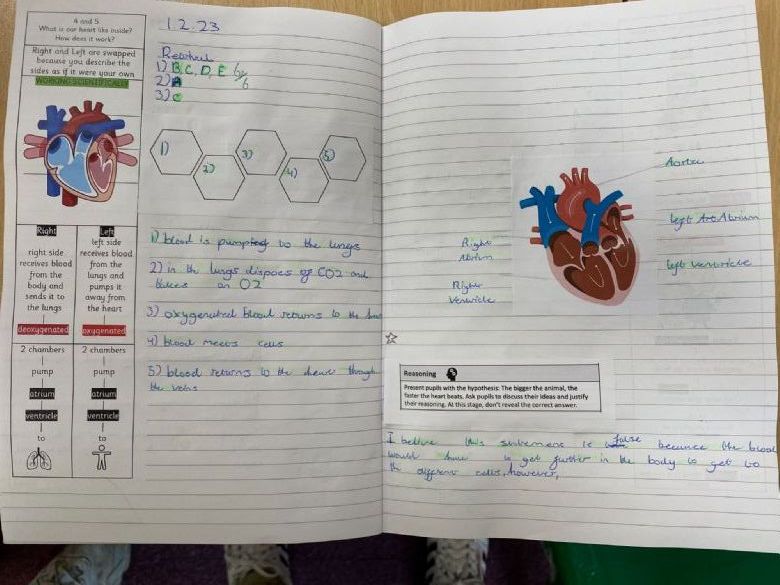 4 and 5
What is our heart like inside?
How does it work?
Right and Left are swapped
because you describe the
sides as if it were your own
WORKING SCIENTIFICALLY
Right
right side
receives blood
from the
body and
sends it to
the lungs
deoxygenated
2 chambers
pump
atrium
ventricle
to
Left
left side
receives blood
from the
lungs and
pumps it
away from
the heart
oxygenated
2 chambers
pump
atrium
ventricle
to
1.2.23
1) B, C, D, E 6/6
2) A
3) C
1)
2)
3)
4)
5)
1) blood is pumped to the lungs
2) in the lungs dispoes of CO2 and
an O2
3) oxygenated blood returns to the
4) blood meets cells
5) blood returns to the through
the veins
Aorta
left Atrium
left Ventricle
Right
Atrium
Right
Ventricle
Reasoning
Present pupils with the hypothesis: The bigger the animal, the
faster the heart beats. Ask pupils to discuss their ideas and justify
their reasoning. At this stage, don't reveal the correct answer.
I this statement is false the blood
would have to get further in the body to get to
the different cells, however,